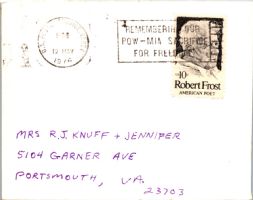 12 NOV
1974
REMEMBERING OUR
POW-MIA SACRIFICE
FOR FREEDOM
10
Robert Frost
AMERICAN POET
MRS R.J. KNUFF + JENNIPER
5104 GARNER AVE
PORTSMOUTH, VA.
23703